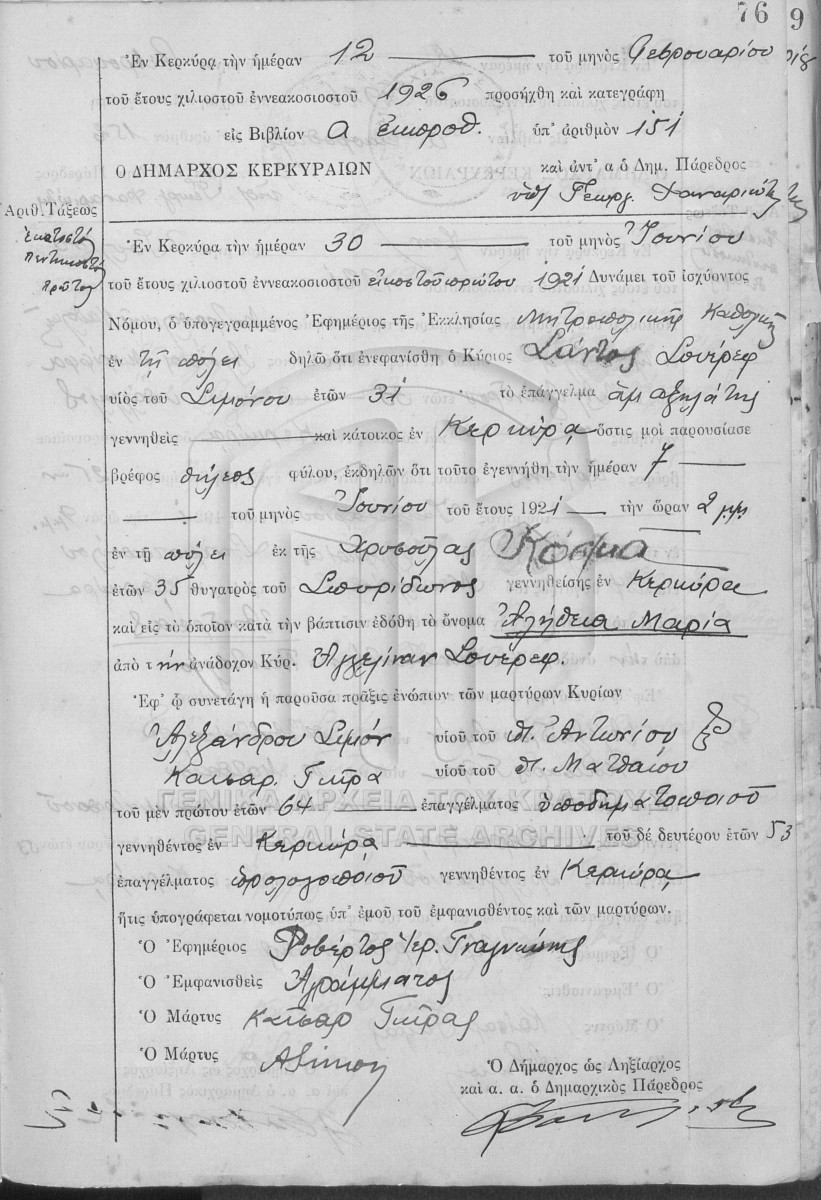 76 9
Ἐν Κερκύρᾳ τὴν ἡμέραν 12 τοῦ μηνὸς Φεβρουαρίου
τοῦ ἔτους χιλιοστοῦ ἐννεακοσιοστοῦ 1926 προσήχθη καὶ κατεγράφη
εἰς Βιβλίον α ἐκπροθ. ὑπ' ἀριθμὸν 151
Ο ΔΗΜΑΡΧΟΣ ΚΕΡΚΥΡΑΙΩΝ καὶ ἀντ' α ὁ Δημ. Πάρεδρος
Γεωργ.
Ἀριθ. Τάξεως
ἑκατοστὸ
πεντηκοστὸ
πρῶτον
Ἐν Κερκύρᾳ τὴν ἡμέραν 30 τοῦ μηνὸς Ἰουνίου
τοῦ ἔτους χιλιοστοῦ ἐννεακοσιοστοῦ εἰκοστοῦ πρώτου 1921 Δυνάμει τοῦ ἰσχύοντος
Νόμου, ὁ ὑπογεγραμμένος Ἐφημέριος τῆς Ἐκκλησίας Μητροπολιτικῆς Καθολικῆς
ἐν τῇ πόλει δηλῶ ὅτι ἐνεφανίσθη ὁ Κύριος Σάντος Σουέρεφ
υἱὸς τοῦ Σιμόνου ἐτῶν 31 τὸ ἐπάγγελμα ἁμαξηλάτης
γεννηθεὶς καὶ κάτοικος ἐν Κερκύρᾳ ὅστις μοὶ παρουσίασε
βρέφος θήλεος φύλου, ἐκδηλῶν ὅτι τοῦτο ἐγεννήθη τὴν ἡμέραν 7
τοῦ μηνὸς Ἰουνίου τοῦ ἔτους 1921 τὴν ὥραν 2 μμ
ἐν τῇ πόλει ἐκ τῆς Χρυσούλας Κόσμα
ἐτῶν 35 θυγατρὸς τοῦ Σπυρίδωνος γεννηθείσης ἐν Κερκύρᾳ
καὶ εἰς τὸ ὁποῖον κατὰ τὴν βάπτισιν ἐδόθη τὸ ὄνομα Ἀλήθεια Μαρία
ἀπὸ τὴν ἀνάδοχον Κύρ. Ἀγγελίναν Σουέρεφ.
Ἐφ' ᾧ συνετάγη ἡ παροῦσα πρᾶξις ἐνώπιον τῶν μαρτύρων Κυρίων
Ἀλεξάνδρου Σιμόν υἱοῦ τοῦ π. Ἀντωνίου
Καίσαρ. Γκίρα υἱοῦ τοῦ π. Ματθαίου
τοῦ μὲν πρώτου ἐτῶν 64 ἐπαγγέλματος ὑποδηματοποιοῦ
γεννηθέντος ἐν Κερκύρᾳ τοῦ δὲ δευτέρου ἐτῶν 53
ἐπαγγέλματος ὡρολογοποιοῦ γεννηθέντος ἐν Κερκύρᾳ
ἥτις ὑπογράφεται νομοτύπως ὑπ' ἐμοῦ τοῦ ἐμφανισθέντος καὶ τῶν μαρτύρων.
Ὁ Ἐφημέριος Ροβέρτος Ἱερ.
Ὁ Ἐμφανισθεὶς Ἀγράμματος
Ὁ Μάρτυς Καῖσαρ Γκίρας
Ὁ Μάρτυς ASimon
Ὁ Δήμαρχος ὡς Ληξίαρχος
καὶ α. α. ὁ Δημαρχικὸς Πάρεδρος
ΓΕΝΙΚΑ ΑΡΧΕΙΑ ΤΟΥ ΚΡΑΤΟΥΣ
GENERAL STATE ARCHIVES